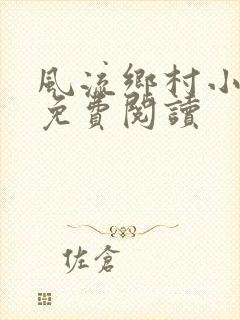 風流鄉村小
免費閱讀
佐倉